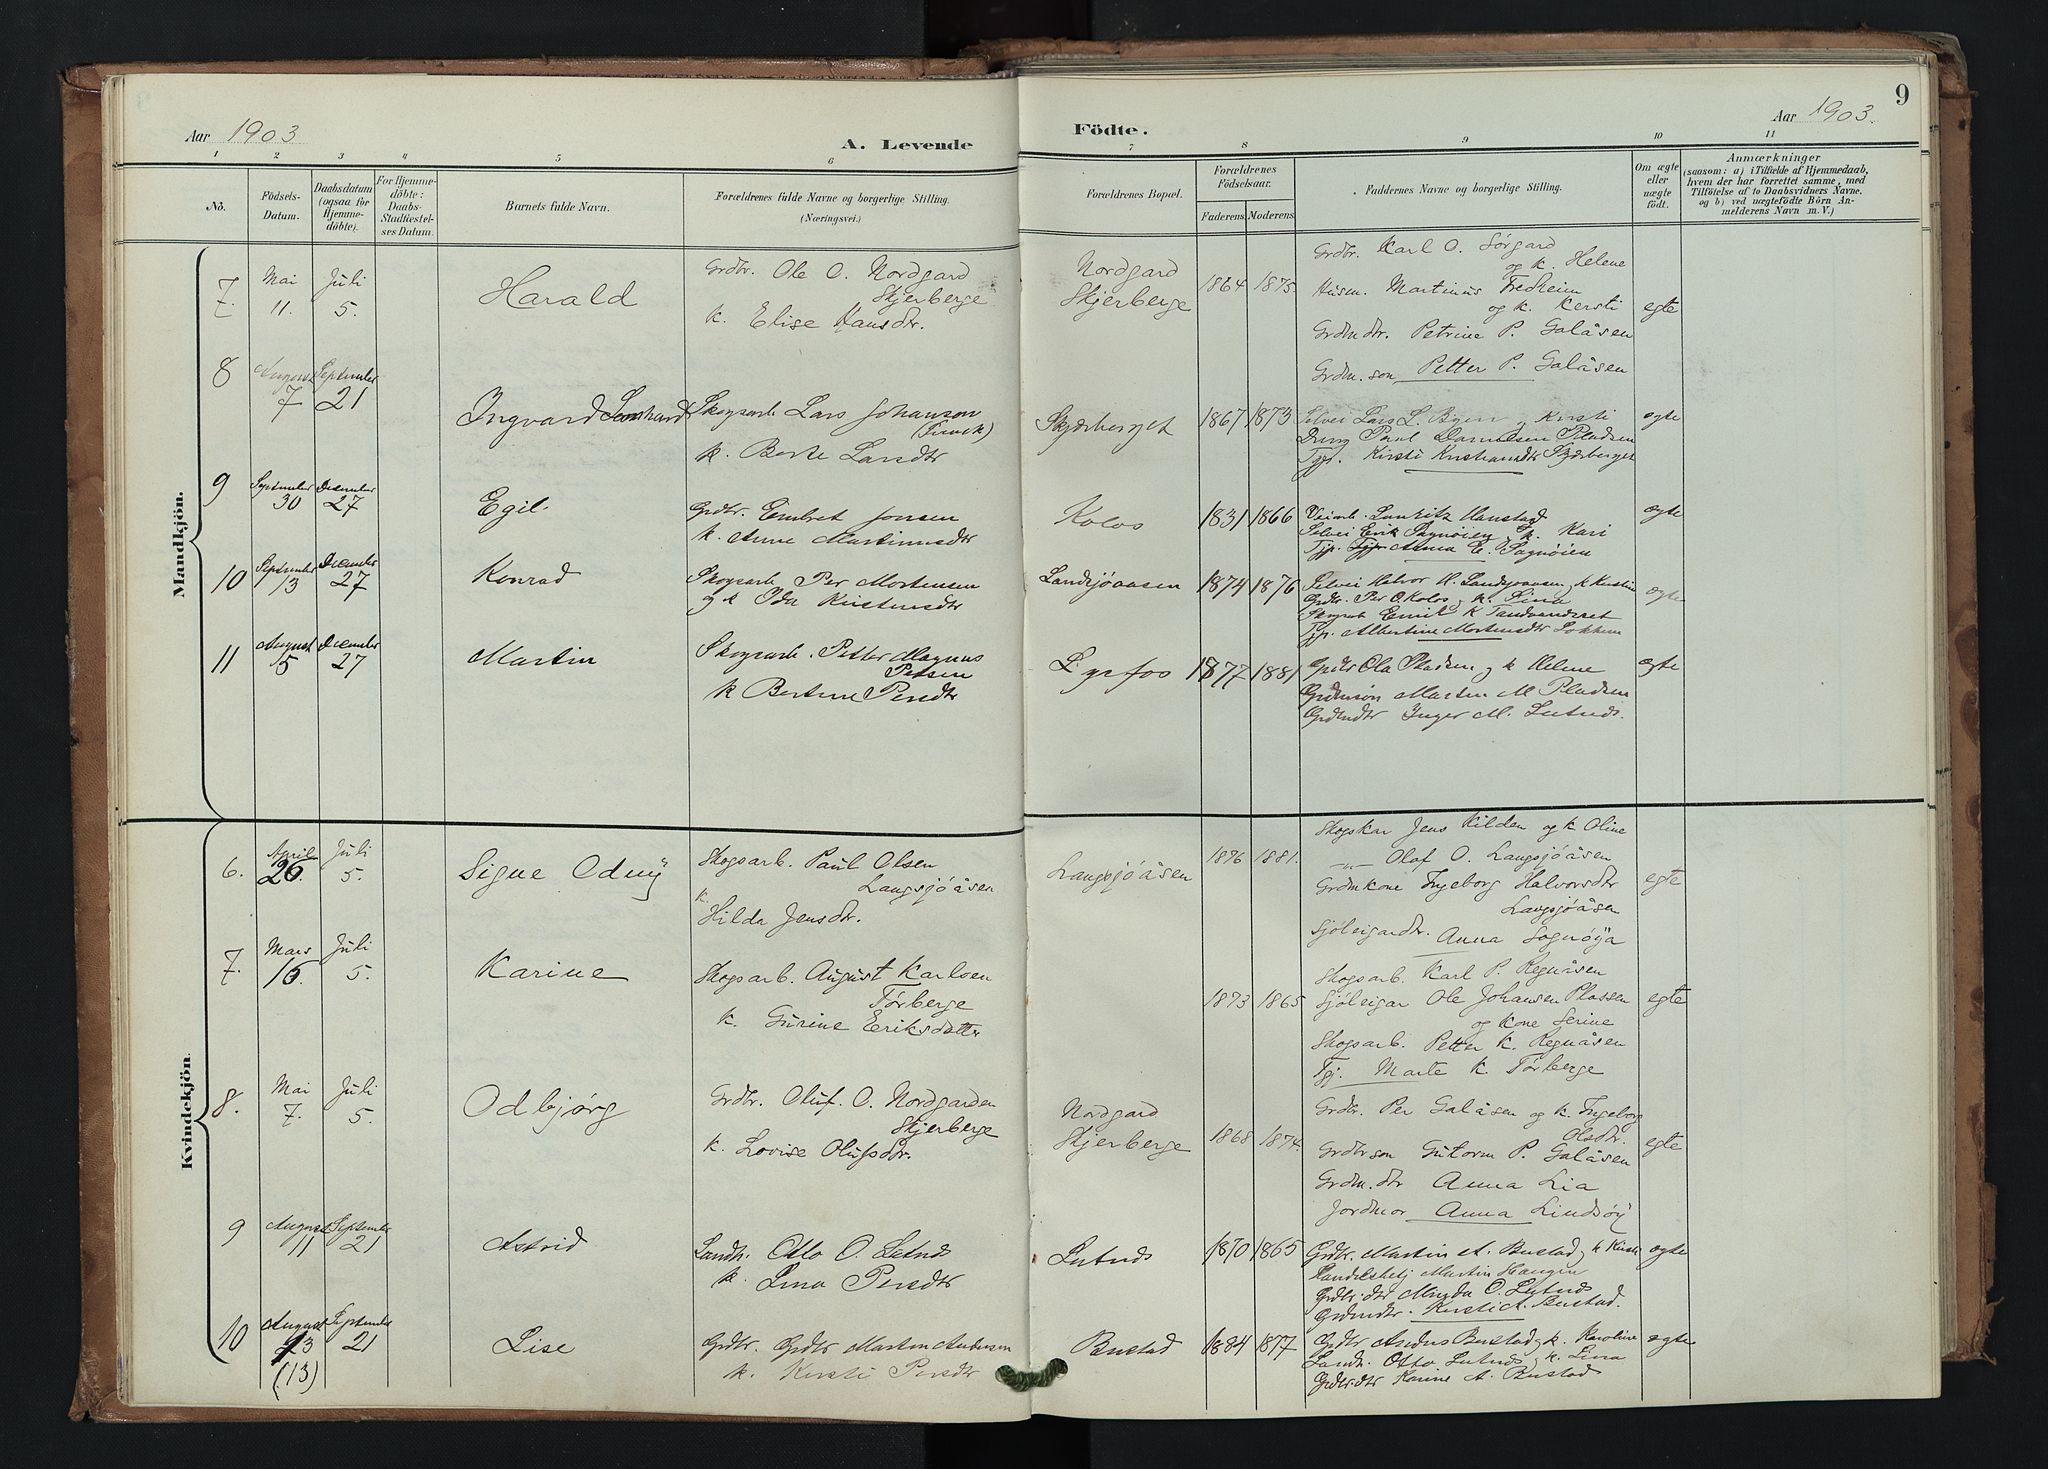 9
Aar 1903
A. Levende
Födte.
Aar 1903.
1 2 3 4 5 6 7 8 9 10 11
No.
Födsels-
Datum.
Daabsdatum
(ogsaa for
Hjemme-
döbte).
For Hjemme-
döbte:
Daabs-
Stadfæstel-
ses Datum.
Barnets fulde Navn.
Forældrenes fulde Navne og borgerlige Stilling.
(Næringsvei.)
Forældrenes Bopæl.
Forældrenes
Födselsaar.
Faderens. Moderens.
Faddernes Navne og borgerlige Stilling.
Om ægte
eller
uægte
födt.
Anmærkninger
(saasom: a) i Tilfælde af Hjemmedaab,
hvem der har forrettet samme, med
Tilföielse af to Daabsvidners Navne.
og b) ved uægtefödte Börn An-
melderens Navn m. V.)
Mandkjön.
7. Mai 11. Juli 5.
Harald
Grdbr. Ole O. Nordgard
Skjerberge
k. Elise Hansdtr.
Nordgard
Skjerberge
1864 1875
Grdbr. Karl O. Sørgard
og k. Helene
Husm. Martinus Fredheim
og k. Kersti
Grdm dtr. Petrine P. Galåsen
Grdm. son Petter P. Galåsen
egte
8 August 7 September 21
Ingvard Leonhard
Skogsarb Lars Johansen
k. Berte Larsdtr
Skjærberget
1867 1873
Selvei Lars L. Byen Kirsti
Dreng Paul Danielsen Pladsen
Tjp. Kirsti Kristiansdtr Skjærberget
ægte
9 September 30 December 27
Egil
Grdbr. Embret Jonsen
k. Anne Martinusdtr
Kolos
1831 1866
Lauritz Hanstad
Selvei Erik Sagnøien k. Kari
Tjp. Tjp. Anna E. Sognøien
ægte
10 September 13 December 27
Konrad
Skogsarb Per Mortensen
og k Ida Kristensdtr
Landsjøaasen
1874 1876
Selvei Halvor H. Landsjøaasen, k Kirstine
Grdbr. Per O. Kolos, k. Sina
Skogsarb Emil K Tandvandsæt
Tjp. Albertine Mortensdtr Løkken
ægte
11 August 15 December 27
Martin
Skogsarb. Petter Magnus
Petersen
k Bertine Persdtr
Lyrfos
1877 1881
Grdbr Ola Pladsen og k Helene
Grdmsøn Marten M Pladsen
Grdmdtr Inger M. Lutnæs.
ægte
Kvindekjön.
6. April 26. Juli 5.
Signe Odny
Skogsarb. Paul Olsen
Langsjöåsen
k.
Hilda Jensdtr.
Langsjöåsen
1876 1881.
Skogskar Jens Kilden og k Oline
—"— Olaf O. Langsjöåsen
Grdmkone Ingeborg Halvorsdtr
Langsjöåsen
Sjöleigardtr. Anna Sognøya
egte
7. Mars 16. Juli 5.
Karine
Skogsarb. August Karlsen
Tørberge
k. Gurine Eriksdatter
1873 1865
Skogsarb. Karl P. Regnåsen
Sjöleigar Ole Johansen Plassen
og kone Serine
Skogsarb. Petter K. Regnåsen
Tgj. Marte K. Tørberge
egte
8. Mai 7. Juli 5.
Odbjørg
Grdbr. Oluf. O. Nordgarden
Skjerberge
k. Lovise Olufsdtr.
Nordgard
Skjerberge
1868 1874.
Grdbr. Per Galåsen og k. Ingeborg
Olsdtr.
Grdbrson Gutorm P. Galåsen
Grdm. dtr Anna Lia
Jordmor Anna Lindsöy
egte
9 August 11 September 21
Astrid
Landh. Otto O. Lutnæs
k. Lina Persdtr
Lutnæs
1870 1865
Grdbr. Martin A. Bustad, k Kirsti
Handelsbetj Martin Haugen
Grdbr. dtr Magda O. Lutnæs
Grdmdtr. Kirsti A. Bustad.
ægte
10 August 13 September 21
(13)
Lise
Grdbr. Grdbr Martin Andersen
k. Kersti Persdtr
Bustad
1884 1877
Grdbr Anders Bustad, k. Karoline
Landh. Otto Lutnæs, k. Lina
Grdbr. dtr Karine A. Bustad
ægte